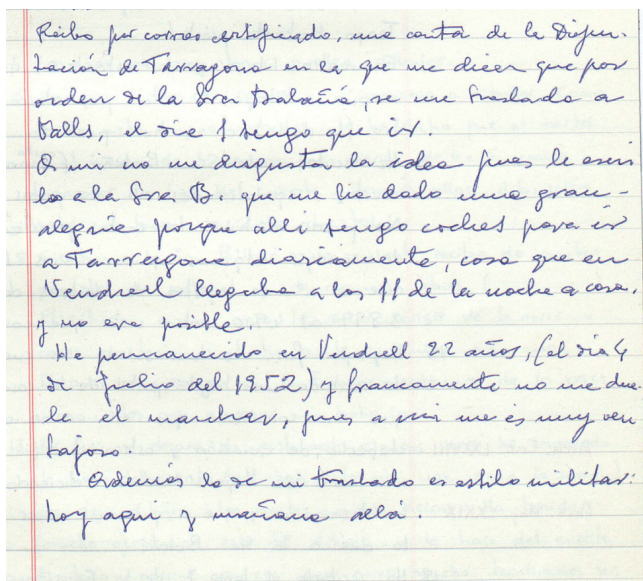 Recibo por correo certificado, una carta de la Dipu-
tación de Tarragona en la que me dicen que por
orden de la Sra Balañá, se me traslada a
Valls, el día 1 tengo que ir.
A mi no me disgusta la idea pues le escri
bo a la Sra B. que me ha dado una gran
alegria porque alli tengo coches para ir
a Tarragona diariamente, cosa que en
Vendrell llegaba a las 11 de la noche a casa,
y no era posible.
He permanecido en Vendrell 22 años, (el dia 4
de Julio del 1952) y francamente no me due-
le el marchar, pues a mi me es muy ven
tajoso.
Además lo de mi traslado es estilo militar:
hoy aqui y mañana allá.